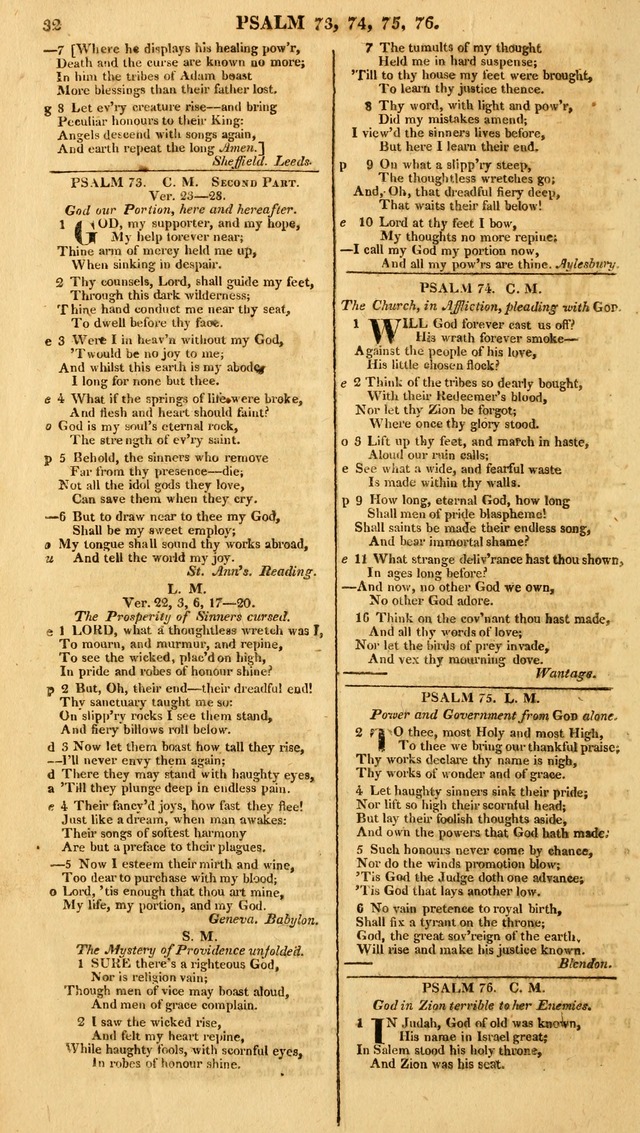 32
PSALM 73, 74, 75, 76.
—7 [Where he displays his healing pow'r,
Death and the curse are known no more;
In him the tribes of Adam boast
More blessings than their father lost.
g 8 Let ev'ry creature rise—and bring
Peculiar honours to their King:
Angels descend with songs again,
And earth repeat the long Amen.]
Sheffield. Leeds.
PSALM 73. C. M. SECOND PART.
Ver. 23—28.
God our Portion, here and hereafter.
1 GOD, my supporter, and my hope,
My help forever near;
Thine arm of mercy held me up,
When sinking in despair.
2 Thy counsels, Lord, shall guide my feet,
Through this dark wilderness;
Thine hand conduct me near thy seat,
To dwell before thy face.
e 3 Were I in heav'n without my God,
'Twould be no joy to me;
And whilst this earth is my abode,
I long for none but thee.
e 4 What if the springs of life were broke,
And flesh and heart should faint?
o God is my soul's eternal rock,
The strength of ev'ry saint.
p 5 Behold, the sinners who remove
Far from thy presence—die;
Not all the idol gods they love,
Can save them when they cry.
—6 But to draw near to thee my God,
Shall be my sweet employ;
o My tongue shall sound thy works abroad,
u And tell the world my joy.
St. Ann's. Reading.
L. M.
Ver. 22, 3, 6, 17—20.
The Prosperity of Sinners cursed.
e 1 LORD, what a thoughtless wretch was I,
To mourn, and murmur, and repine,
To see the wicked, plac'd on high,
In pride and robes of honour shine?
p 2 But, Oh, their end—their dreadful end!
Thy sanctuary taught me so:
On slipp'ry rocks I see them stand,
And fiery billows roll below.
d 3 Now let them boast how tall they rise,
—I'll never envy them again;
d There they may stand with haughty eyes,
a 'Till they plunge deep in endless pain.
e 4 Their fancy'd joys, how fast they flee!
Just like a dream, when man awakes:
Their songs of softest harmony
Are but a preface to their plagues.
—5 Now I esteem their mirth and wine,
Too dear to purchase with my blood;
o Lord, 'tis enough that thou art mine,
My life, my portion, and my God.
Geneva. Babylon.
S. M.
The Mystery of Providence unfolded.
1 SURE there's a righteous God,
Nor is religion vain;
Though men of vice may boast aloud,
And men of grace complain.
2 I saw the wicked rise,
And felt my heart repine,
While haughty fools, with scornful eyes,
In robes of honour shine.
7 The tumults of my thought
Held me in hard suspense;
'Till to thy house my feet were brought,
To learn thy justice thence.
8 Thy word, with light and pow'r,
Did my mistakes amend;
I view'd the sinners lives before,
But here I learn their end.
p 9 On what a slipp'ry steep,
The thoughtless wretches go;
And, Oh, that dreadful fiery deep,
That waits their fall below!
e 10 Lord at thy feet I bow,
My thoughts no more repine;
—I call my God my portion now,
And all my pow'rs are thine. Aylesbury.
PSALM 74. C. M.
The Church, in Affliction, pleading with GOD.
1 WILL God forever cast us off?
His wrath forever smoke—
Against the people of his love,
His little chosen flock?
e 2 Think of the tribes so dearly bought,
With their Redeemer's blood,
Nor let thy Zion be forgot;
Where once thy glory stood.
o 3 Lift up thy feet, and march in haste,
Aloud our ruin calls;
e See what a wide, and fearful waste
Is made within thy walls.
p 9 How long, eternal God, how long
Shall men of pride blaspheme!
Shall saints be made their endless song,
And bear immortal shame?
e 11 What strange deliv'rance hast thou shown,
In ages long before?
—And now, no other God we own,
No other God adore.
16 Think on the cov'nant thou hast made,
And all thy words of love;
Nor let the birds of prey invade,
And vex thy mourning dove.
Wantage.
PSALM 75. L. M.
Power and Government from GOD alone.
2 TO thee, most Holy and most High,
To thee we bring our thankful praise;
Thy works declare thy name is nigh,
Thy works of wonder and of grace.
4 Let haughty sinners sink their pride;
Nor lift so high their scornful head;
But lay their foolish thoughts aside,
And own the powers that God hath made.
5 Such honours never come by chance,
Nor do the winds promotion blow;
'Tis God the Judge doth one advance;
'Tis God that lays another low.
6 No vain pretence to royal birth,
Shall fix a tyrant on the throne;
God, the great sov'reign of the earth,
Will rise and make his justice known.
Blendon.
PSALM 76. C. M.
God in Zion terrible to her Enemies.
1 IN Judah, God of old was known,
His name in Israel great;
In Salem stood his holy throne,
And Zion was his seat.